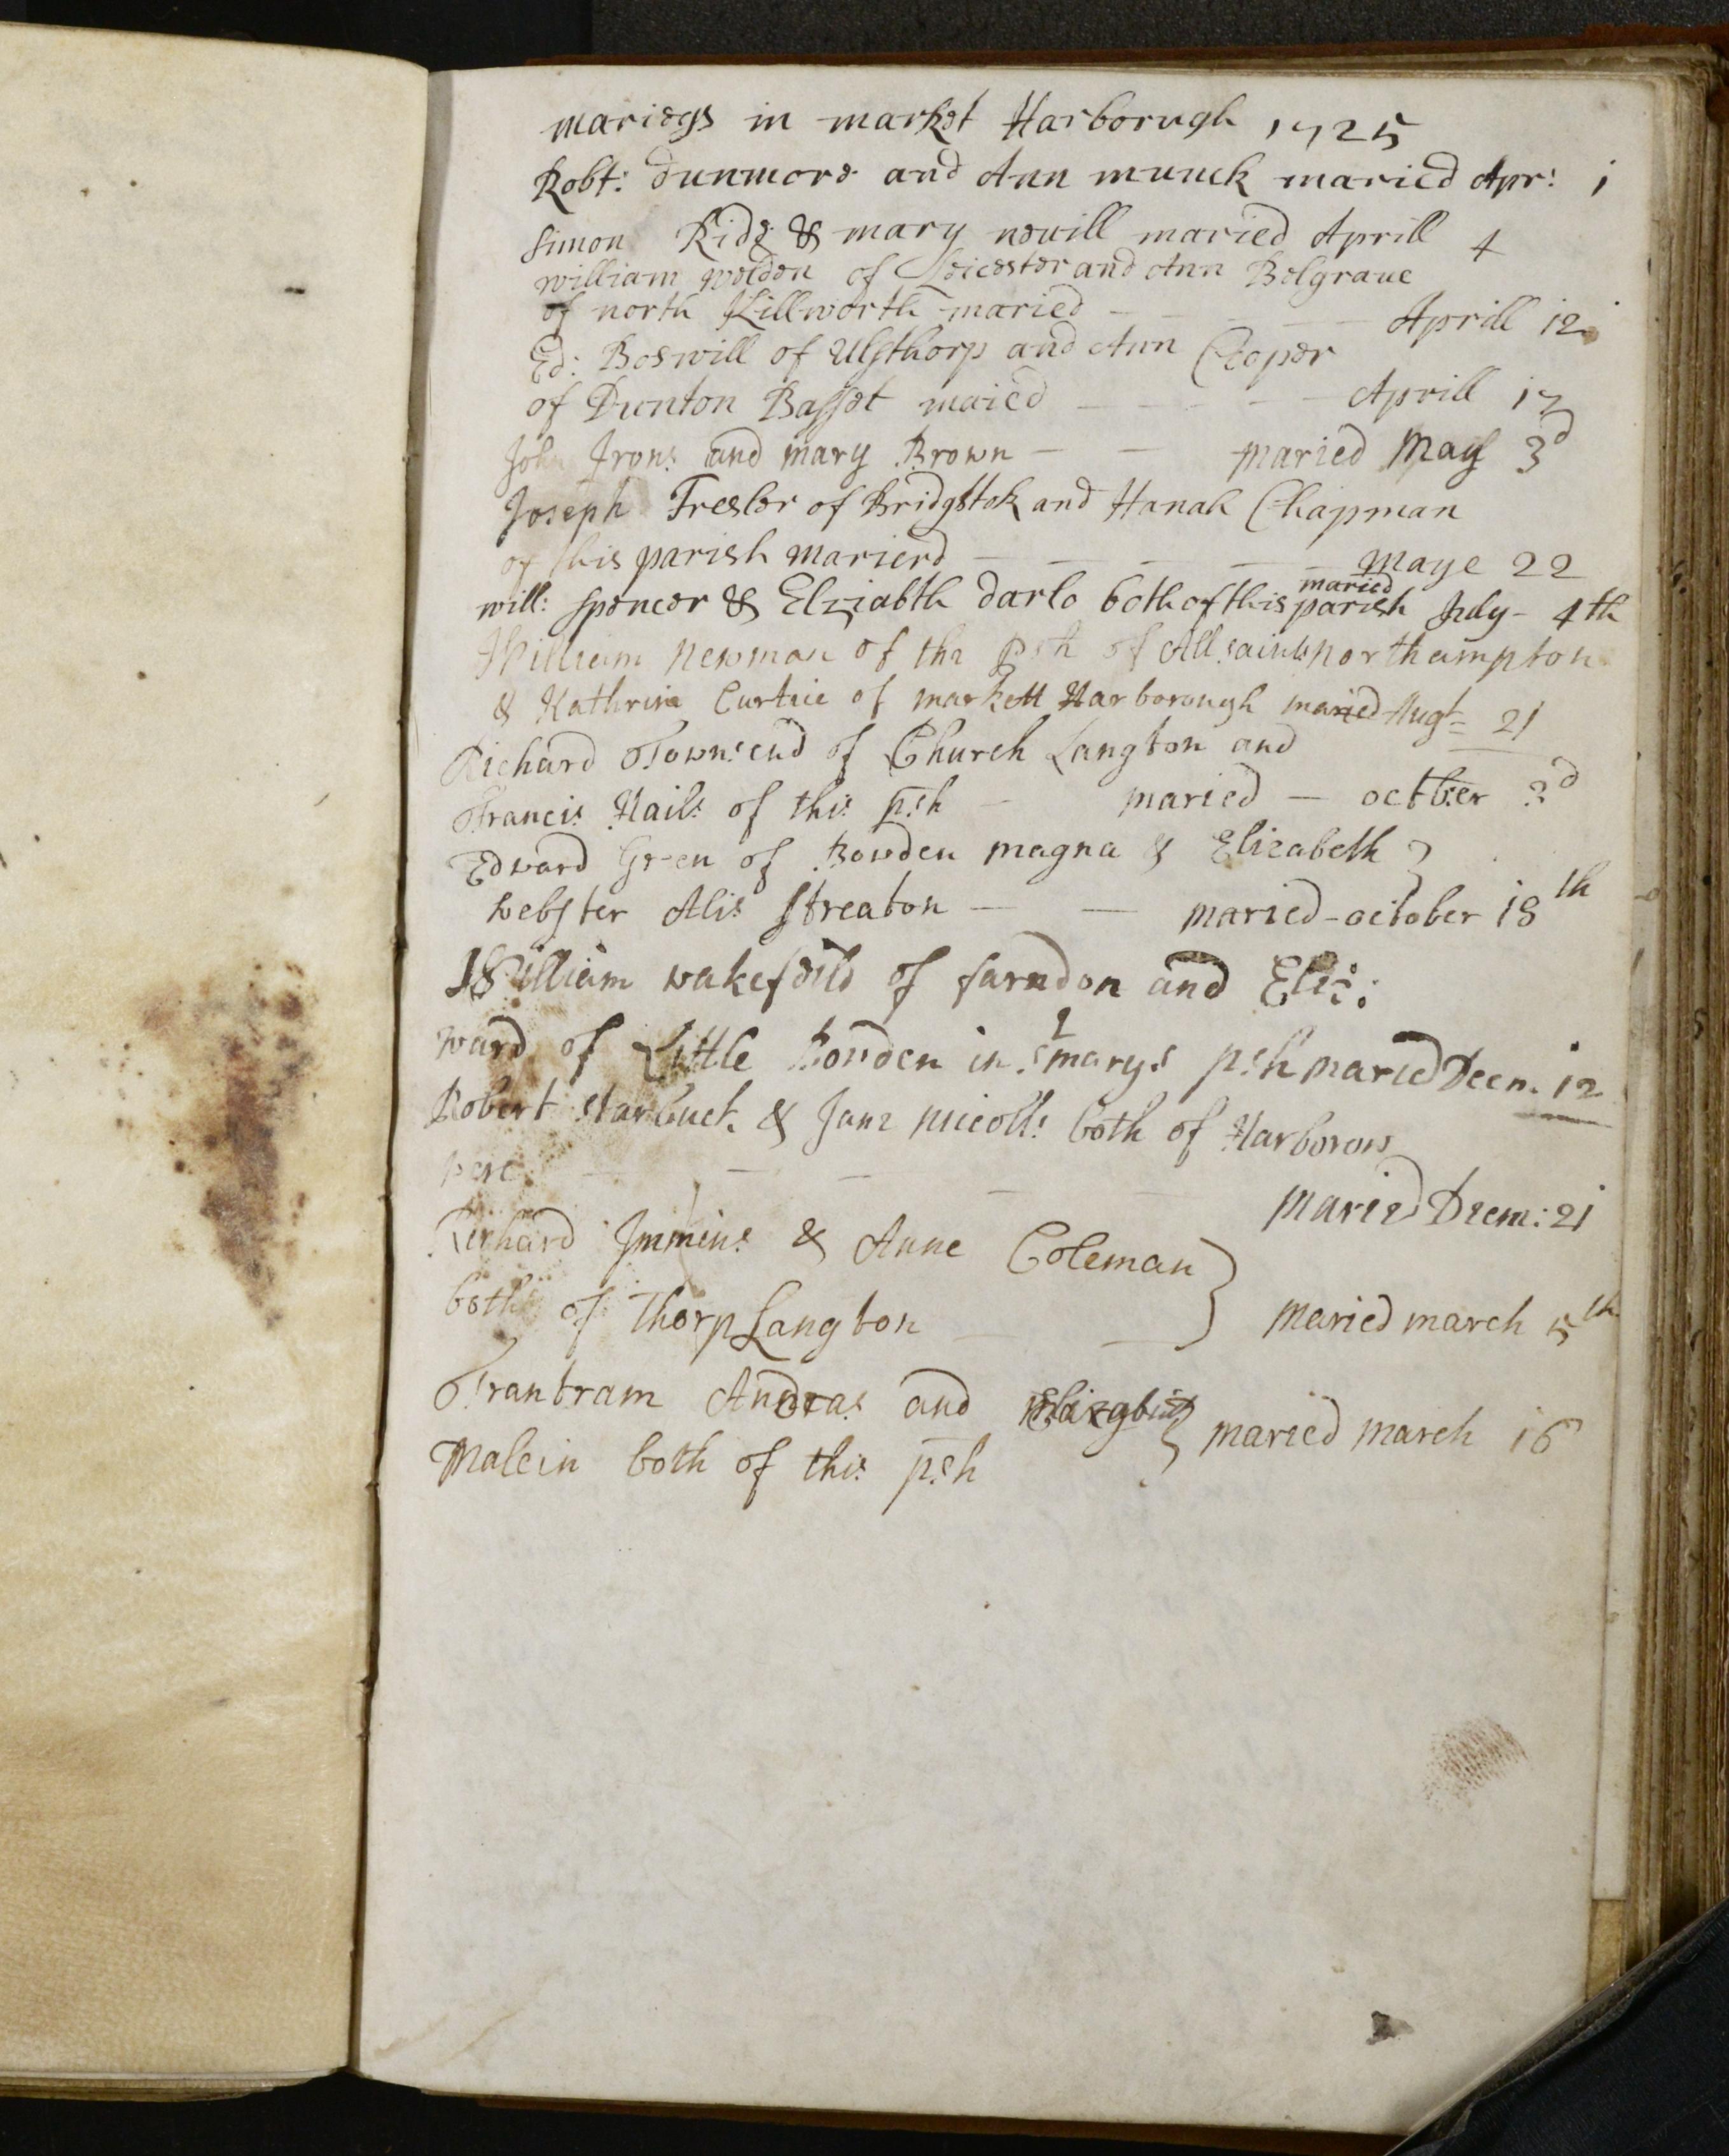 mariegs in market Harborugh 1725
Robt: dunmore and Ann munck maried Apr: 1
simon Ride & mary nevill maried Aprill 4
william welden of Leicester and Ann Belgraue
of north Killworth maried — — — — Aprill 12
Ed: Boswill of Ulsthorp and Ann Cooper
of Dunton Basset maied — — — — Aprill 17
John Irons and mary Brown — — maried May 3d
Joseph Tresler of Bridgstok and Hanah Chapman
of this parish marierd — — — — maye 22
will: spencer & Elziabth darlo both of this parish maried July - 4th
William Newman of the psh of All saints northampton
& Kathrin Curtice of markett Harborough maried Augt 21
Richard Townsend of Church Langton and
Francis Hails of this psh — maried — octber 3d
Edward Green of Bowden magna & Elizabeth
webster Alis Streaton — — maried - october 18th
William wakefeild of farndon and Eliz:
ward of Little Bowden in St marys psh maried Decm. 12
Robert Starbuck & Jane nicolls both of Harborow
— — — — maried Decm: 21
Richard Immins & Anne Coleman
both of Thorp Langton — — maried march 5th
Trantram Andras and
Malein both of this psh maried march 16